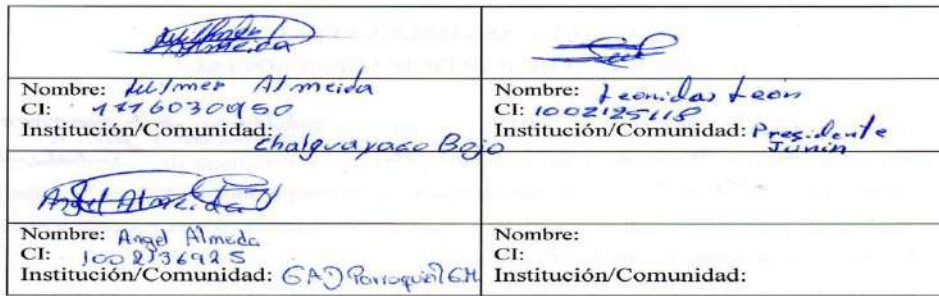 Almeida
Nombre: Wilmer Almeida
CI: 1116030950
Institución/Comunidad: Chalguayaco Bajo
Nombre: Leonidas Leon
CI: 1002125118
Institución/Comunidad: Presidente Junin
Angel Almeida
Nombre: Angel Almeda
CI: 1002136925
Institución/Comunidad: GAD Parroquial GM
Nombre:
CI:
Institución/Comunidad: